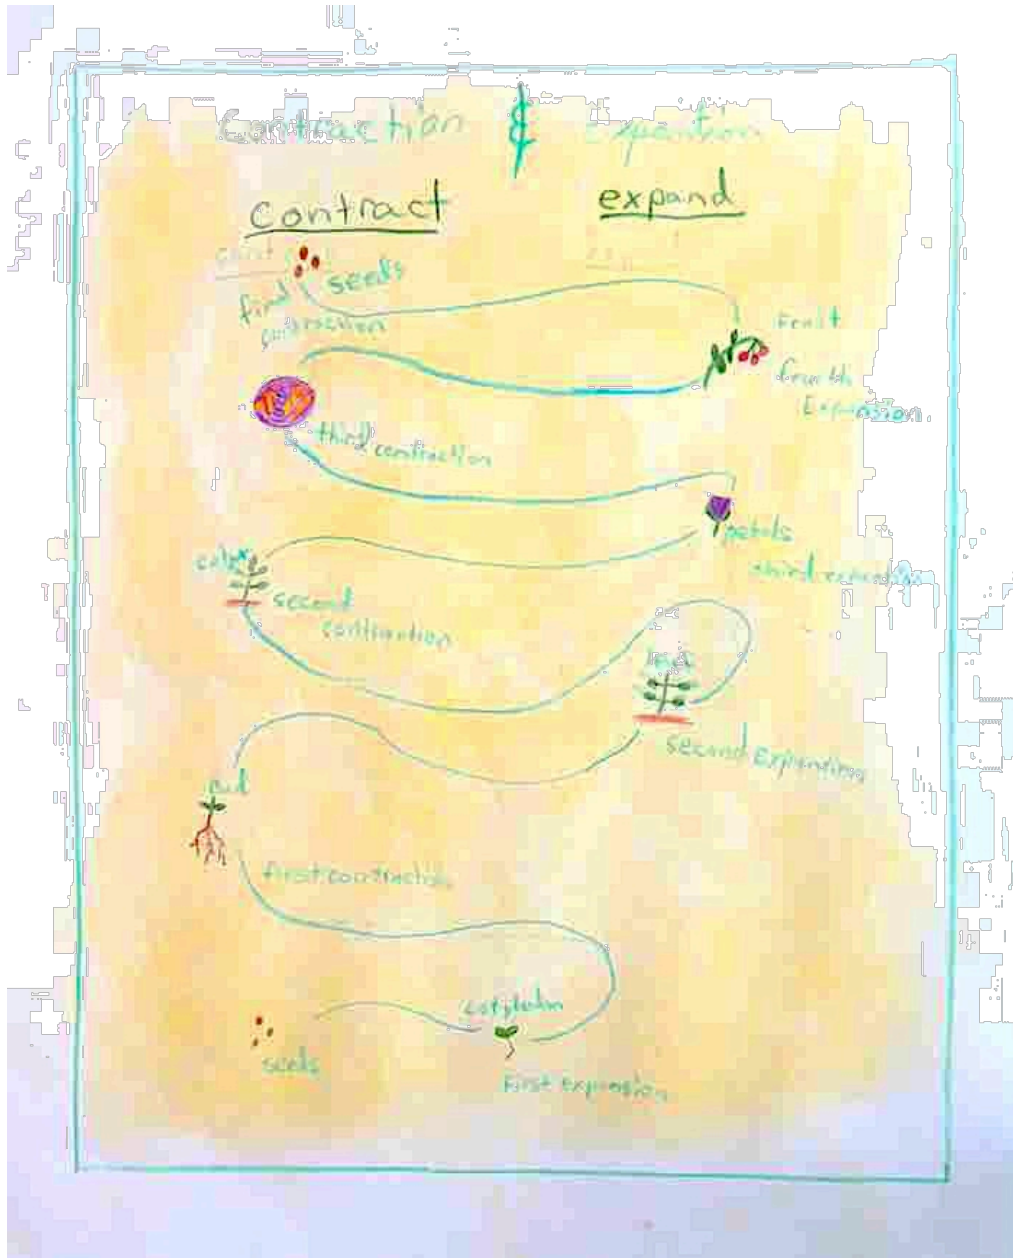 Contraction & Expantion
contract expand
seeds
final
contraction
Fruit
fourth
Expansion
third contraction
petals
third expansion
calyx
second
contraction
leaf
second Expansion
bud
first contraction
cotyledon
seeds
First expansion